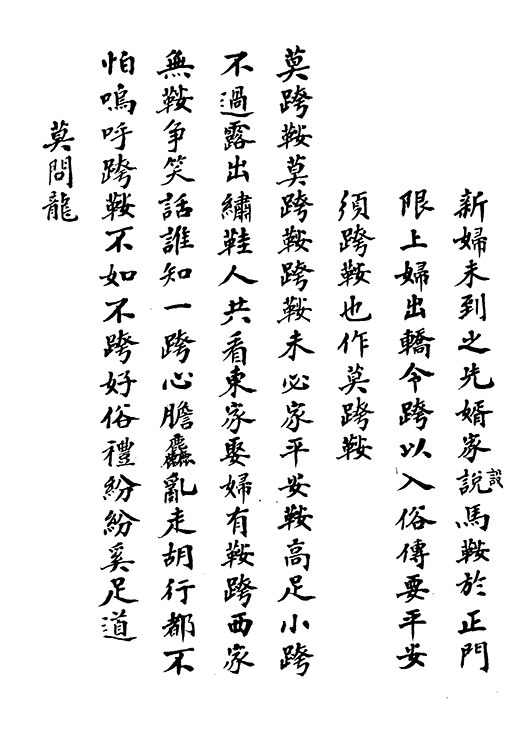 新婦未到之先婿家說設馬鞍於正門
限上婦出轎令跨以入俗傳要平安
須跨鞍也作莫跨鞍
莫跨鞍莫跨鞍跨鞍未必家平安鞍高足小跨
不過露出繡鞋人共看東家娶婦有鞍跨西家
無鞍争笑話誰知一跨心膽麤亂走胡行都不
怕嗚呼跨鞍不如不跨好俗禮紛紛奚足道
莫問龍